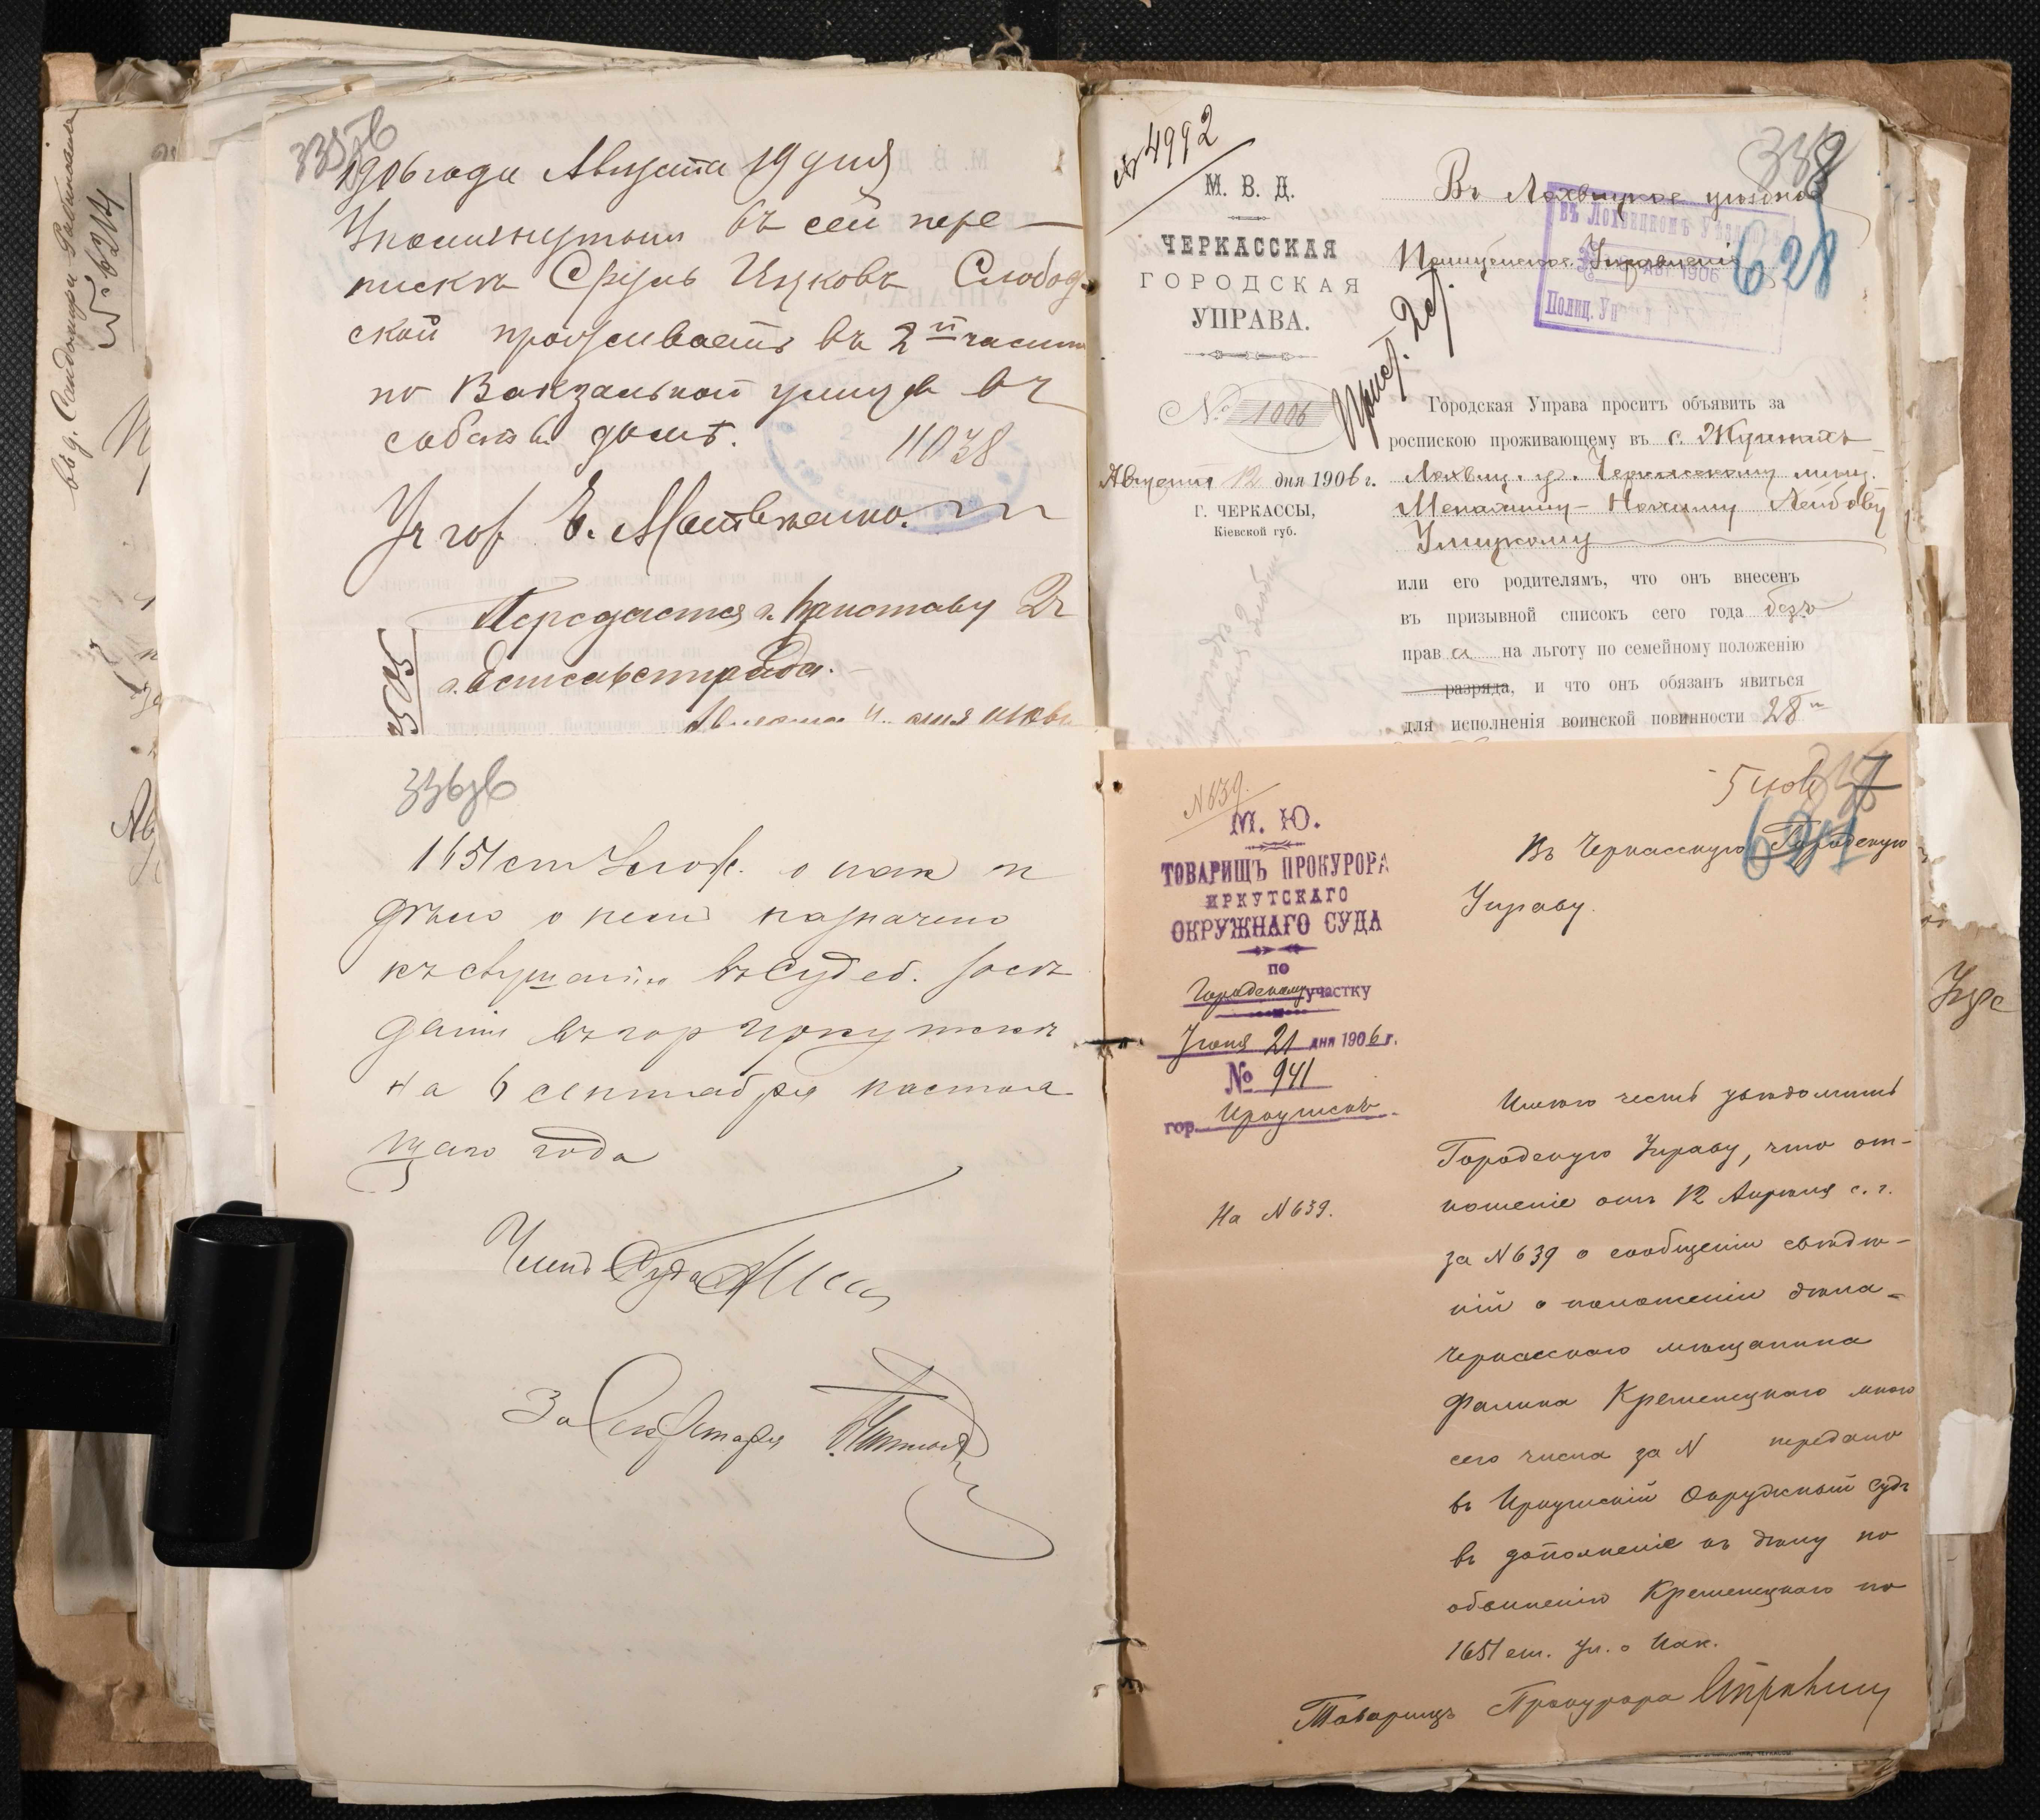 335об
1906 года Августа 19 дня
Упомянутый въ сей пере-
пискѣ Сруль Ицковъ Слобод-
ской проживаетъ въ 2й части
по Вокзальной улицѣ въ
собств. домѣ.
11038
Передается г. Приставу 2 ч
г. Елисаветграда.
338
628
№ 4992
М. В. Д.
ЧЕРКАССКАЯ
ГОРОДСКАЯ
УПРАВА.
№ 1006
Августа 12 дня 1906 г.
Г. ЧЕРКАССЫ,
Кіевской губ.
Въ Лохвицкое уѣздное
Полицейское Управленіе
Прист. 2 ст.
Городская Управа проситъ объявить за
роспискою проживающему въ с. Жданахъ
Лохвиц. у. Черкасскому мѣщ.
Менахиму-Нохиму Лейбову
Улицкому
или его родителямъ, что онъ внесенъ
въ призывной списокъ сего года безъ
права на льготу по семейному положенію
разряда, и что онъ обязанъ явиться
для исполненія воинской повинности 28
336об
1651 ст Улож. о нак и
дѣло о немъ назначено
къ слушанію въ судеб. засѣ
даніи въ гор Иркутскѣ
на 6 сентября настоя
щаго года
Членъ Суда
За Секретаря
№ 639.
М. Ю.
ТОВАРИЩЪ ПРОКУРОРА
ИРКУТСКАГО
ОКРУЖНАГО СУДА
по
Городскому участку
Іюня 21 дня 1906 г.
№ 941
гор. Иркутскъ.
На № 639.
Въ Черкасскую Городскую
Управу.
Имѣю честь увѣдомить
Городскую Управу, что от-
ношеніе отъ 12 Апрѣля с. г.
за № 639 о сообщеніи свѣдѣ-
ній о положеніи дѣла
Черкасскаго мѣщанина
Фалика Кременецкаго мною
сего числа за № передано
въ Иркутскій Окружный Судъ
въ дополненіе къ дѣлу по
обвиненію Кременецкаго по
1651 ст. Ул. о Нак.
Товарищъ Прокурора